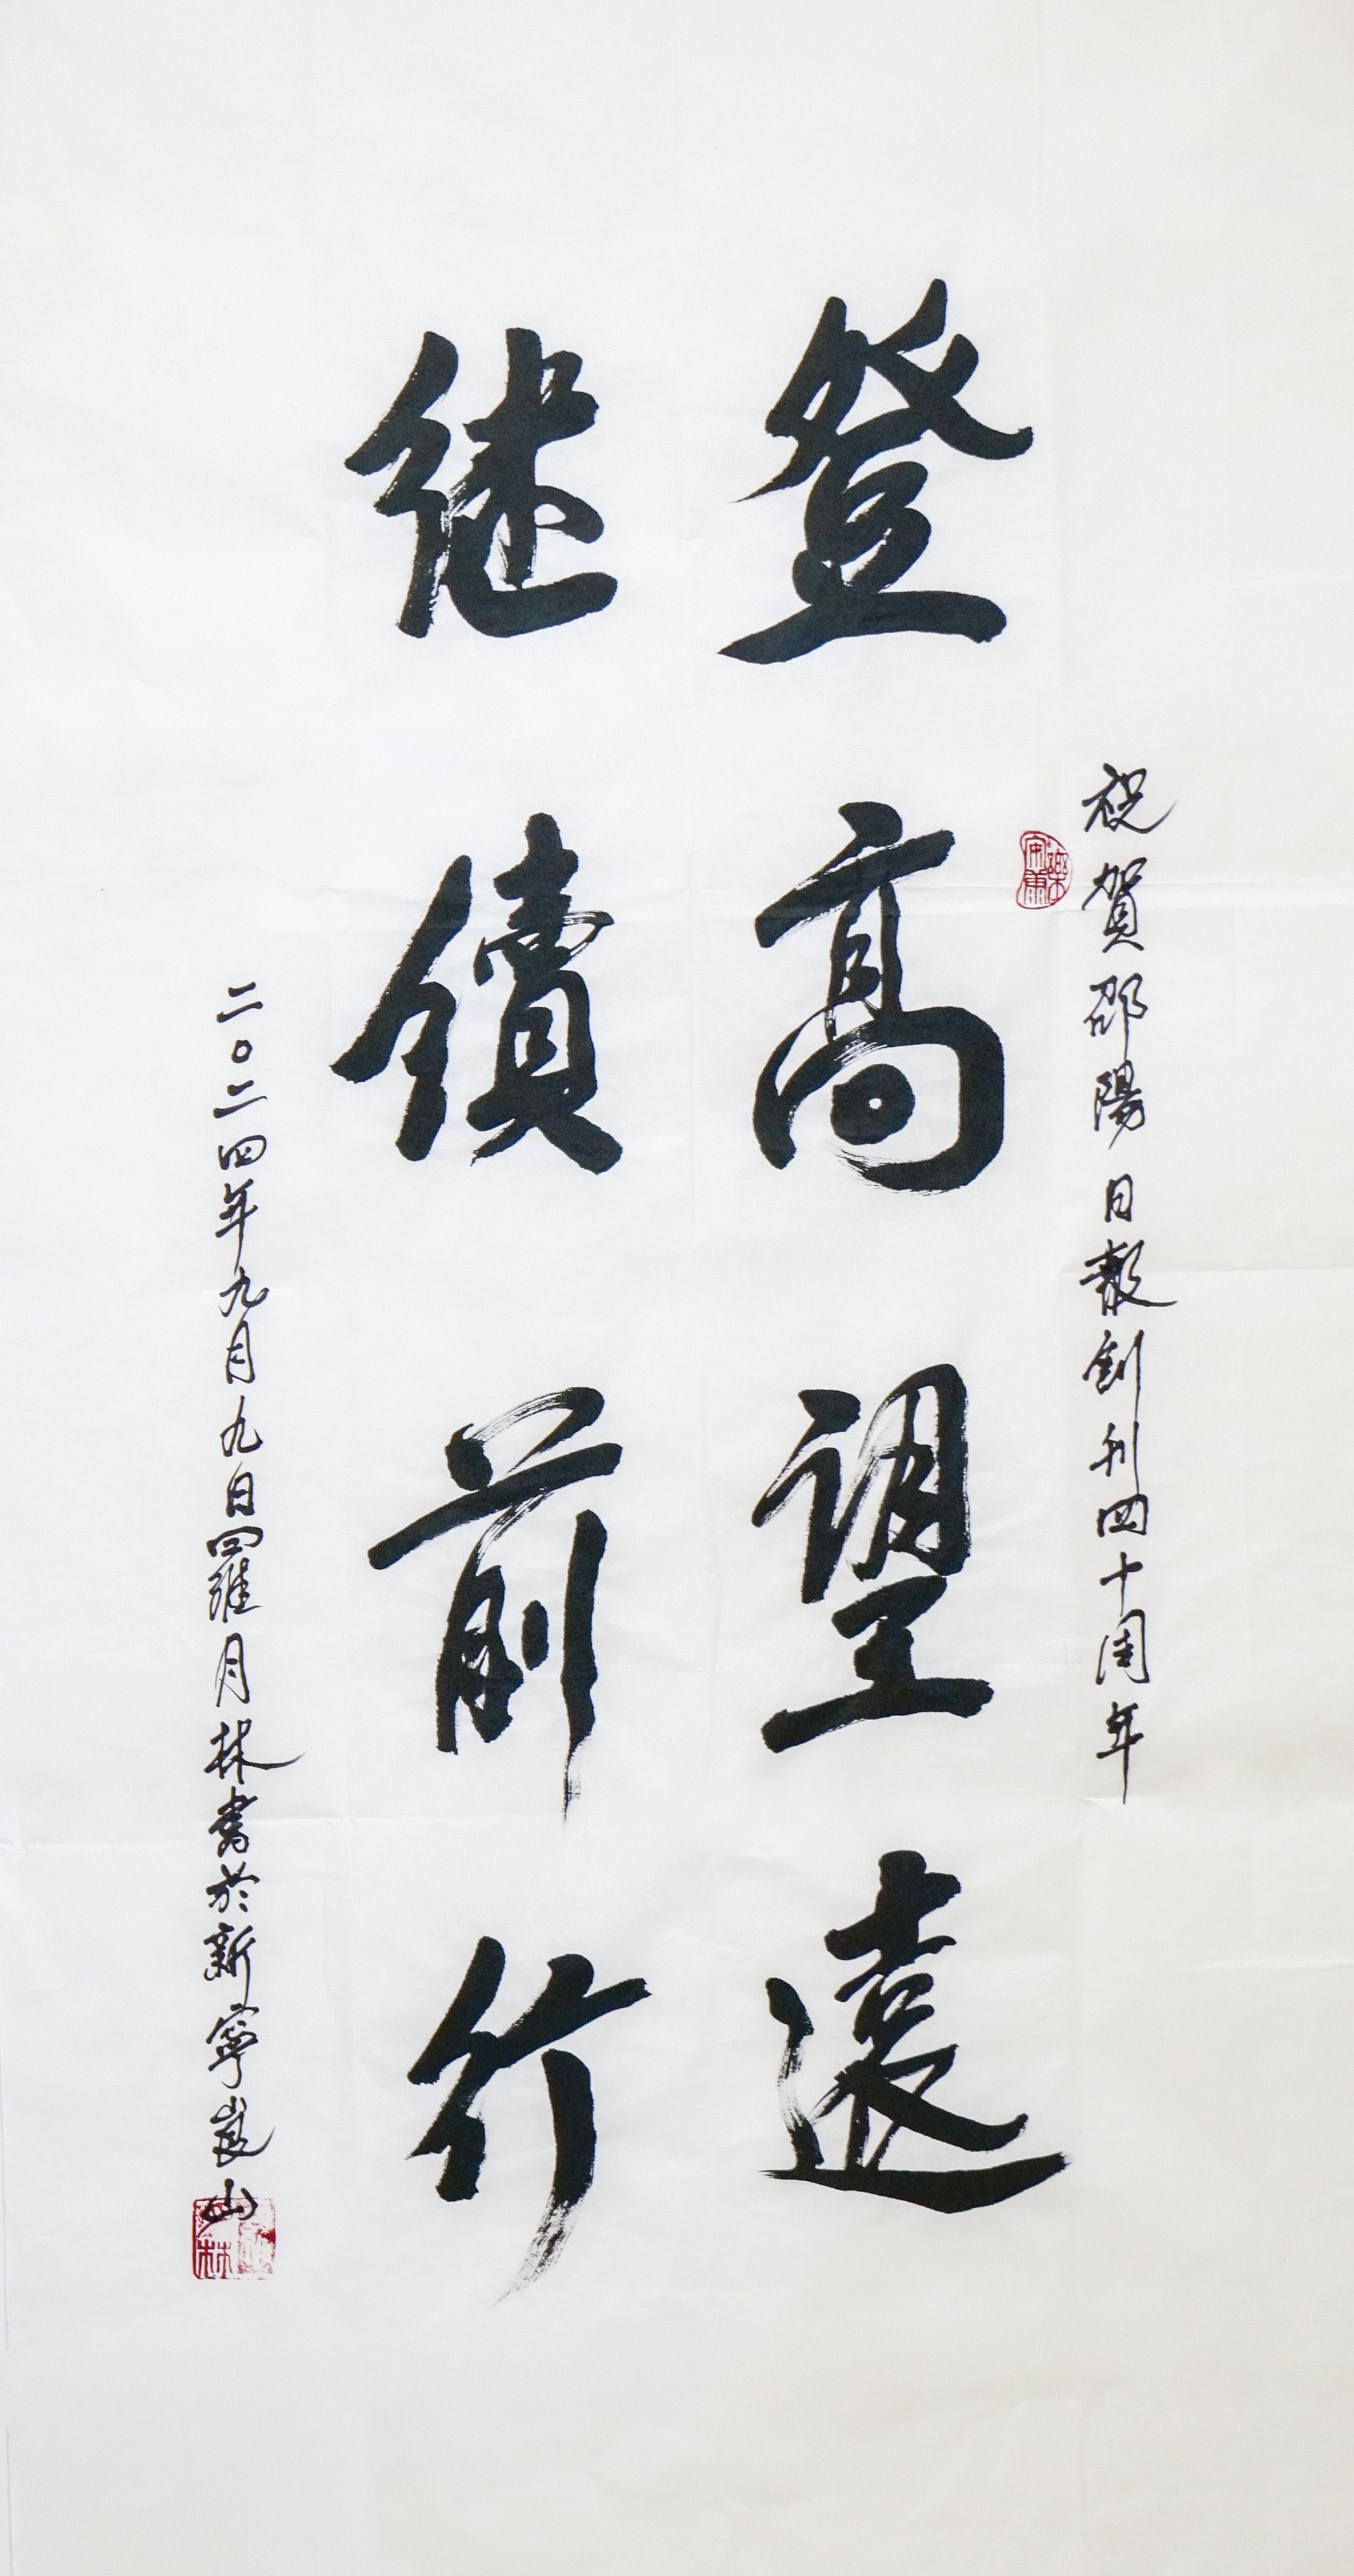 祝賀邵陽日報創刊四十周年
登高望遠
继續前行
二〇二四年九月九日羅月林書於新寧崀山